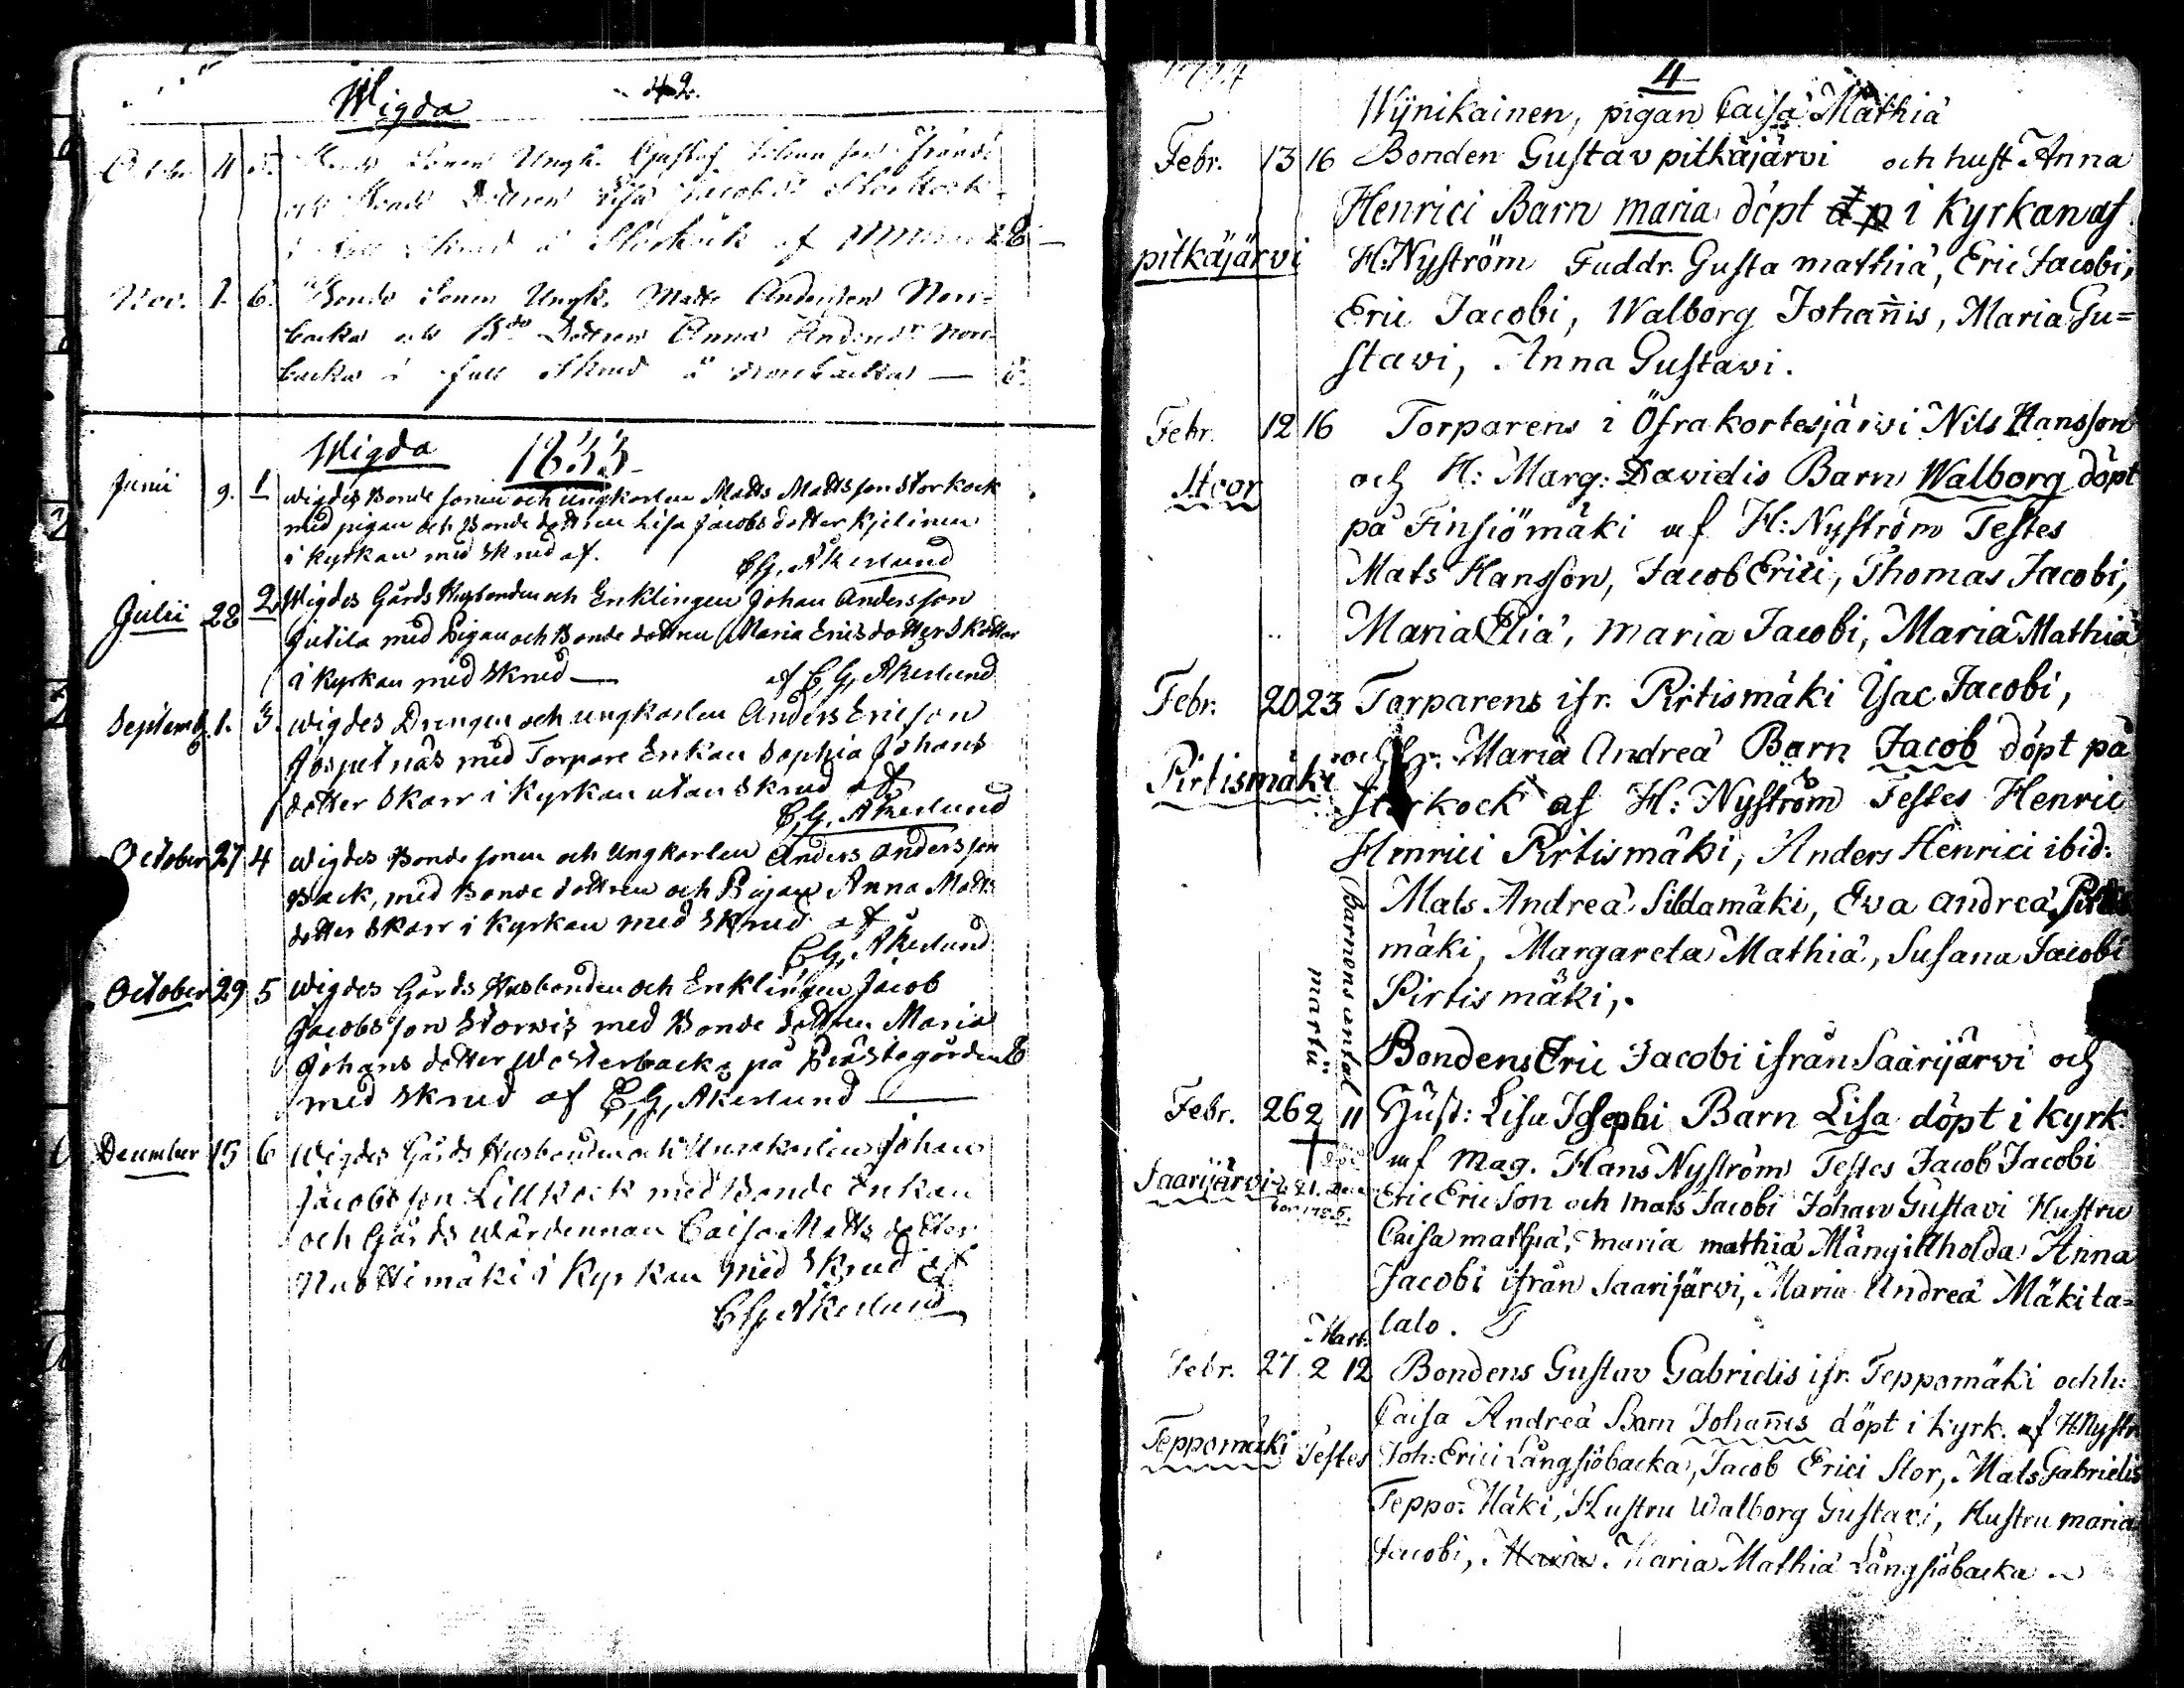 Wigda
42.
Octbr. 4 5. Bonde Sonen Ungk. Gustaf
och Bonde Dottren Lisa Jacobsd. Storkock
i full skrud å Storkåck af
Nov. 1. 6. Bonde Sonen Ungk. Matts Andersson Norr-
backa och Bde Dottren Anna Andersdr Norr-
backa i full skrud å Norrbacka —
Wigda 1833
Junii 9. 1 wigdes Bonde sonen och ungkarlen Matts Mattsson Storkock
med pigan och Bonde dottren Lisa Jacobs dotter Kjelinen
i kyrkan med skrud af.
C.G. Åkerlund
Julii 28 2. Wigdes Gårds Husbonden och Enklingen Johan Andersson
Jutila med Pigan och Bonde dottren Maria Ericsdotter
i kyrkan med skrud — af C.G. Åkerlund
Septemb. 1. 3. wigdes Drengen och ungkarlen Anders Ericson
med Torpare Enkan Sophia Johans
dotter Skarr i Kyrkan utan skrud af
C.G. Åkerlund
October 27 4 wigdes Bonde sonen och Ungkarlen Anders Andersson
Back, med Bonde dottren och Pigan Anna Matts
dotter Skarr i Kyrkan med skrud af
C.G. Åkerlund
October 29 5 wigdes Gårds Husbonden och Enklingen Jacob
Jacobsson Storwis med Bonde dottren Maria
Johans dotter Westerbacka på Prästegården
med skrud af C.G. Åkerlund —
December 15 6 wigdes Gårds Husbonden och Ungkarlen Johan
Jacobsson Lillkock med Bonde Enkan
och Gårds wärdinnan Caisa Matts dotter
Nuottimäki i Kyrkan med skrud af
C.G. Åkerlund
4
Wÿnikainen, pigan Caisa Mathiä
Febr. 13 16 Bonden Gustav pitkäjärvi och hust Anna
Henrici Barn maria döpt i kyrkan af
pitkäjärvi H: Nyström Faddr. Gusta mathiä, Eric Jacobi,
Eric Jacobi, Walborg Johan̄is, Maria Gu=
stavi, Anna Gustavi.
Febr. 12 16 Torparens i Öfrakortesjärvi Nils Hansson
Stoor och H: Marg: Davidis Barn Walborg döpt
på Finsiömäki af H: Nyström Testes
Mats Hansson, Jacob Erici, Thomas Jacobi,
Maria Eliä, maria Jacobi, Maria Mathiä
Febr. 20 23 Torparens ifr. Pirtismäki Isac Jacobi,
Pirtismäki och H. Maria Andreä Barn Jacob döpt på
Storkock af H: Nyström Testes Henric
Henrici Pirtismäki, Anders Henrici ibid:
Mats Andreä Sildamäki, Eva andreä Pirtis
mäki, Margareta Mathiä, Susana Jacobi
Pirtis mäki,.
Barnens antal
martii
Bondens Eric Jacobi ifrån Saarijärvi och
Febr. 26 2 11 Hust: Lisa Josephi Barn Lisa döpt i kyrk.
af Mag. Hans Nyström Testes Jacob Jacobi
Saarijärvi Eric Ericson och Mats Jacobi Johan Gustavi Hustru
Caisa mathiä, maria mathiä Mängikholda Anna
Jacobi ifrån Saarijärvi, Maria Andreä Mäkita=
lalo.
Mart.
Febr. 27 2 12 Bondens Gustav Gabrielis ifr. Teppomäki och h:
Caisa Andreä Barn Johan̄es döpt i kyrk. af H. Nystr.
Teppomäki Testes Joh: Erici Långsiöbacka, Jacob Erici Stor, Mats Gabrielis
Teppo: Mäki, Hustru Walborg Gustavi, Hustru maria
Jacobi, Maria Maria Mathiä Långsiöbacka